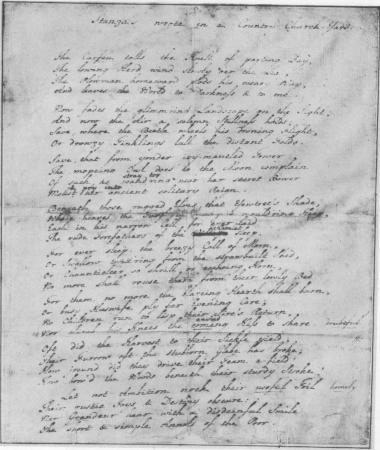 Stanza's wrote in a Country Church-Yard
The Curfew tolls the Knell of parting Day,
The lowing Herd wind slowly o'er the Lea,
The Plowman homeward plods his weary Way,
And leaves the World to Darkness & to me.
Now fades the glimm'ring Landscape on the Sight,
And now the Air a solemn Stillness holds;
Save, where the Beetle wheels his droning Flight,
Or drowsy Tinklings lull the distant Folds.
Save, that from yonder ivy-mantled Tower
The mopeing Owl does to the Moon complain
stray too
Of such as wandring near her secret Bower
& pry into
Molest her ancient solitary Reign.
Beneath those rugged Elms, that Yewtree's Shade,
Where heaves the Turf in many a mould'ring Heap,
Each in his narrow Cell for ever laid
The rude Forefathers of the Hamlet Sleep.
For ever sleep the breezy Call of Morn,
Or Swallow twitt'ring from the strawbuilt Shed,
Or Chaunticleer so shrill, or ecchoing Horn,
No more shall rouse them from their lowly Bed
For them no more the blazeing Hearth shall burn,
Or busy Huswife ply her Evening Care;
No Children run to lisp their Sire's Return
Nor climb his Knees the Kiss to share
Oft did the Harvest to their Sickle yield
Their Furrow oft the stubborn Glebe has broke;
How jocund did they drive their Team a-field!
How bow'd the Woods beneath their sturdy Stroke!
Let not Ambition mock their useful Toil homely
Their rustic Joys & Destiny obscure:
Nor Grandeur hear with a disdainful Smile
The short & simple Annals of the Poor.